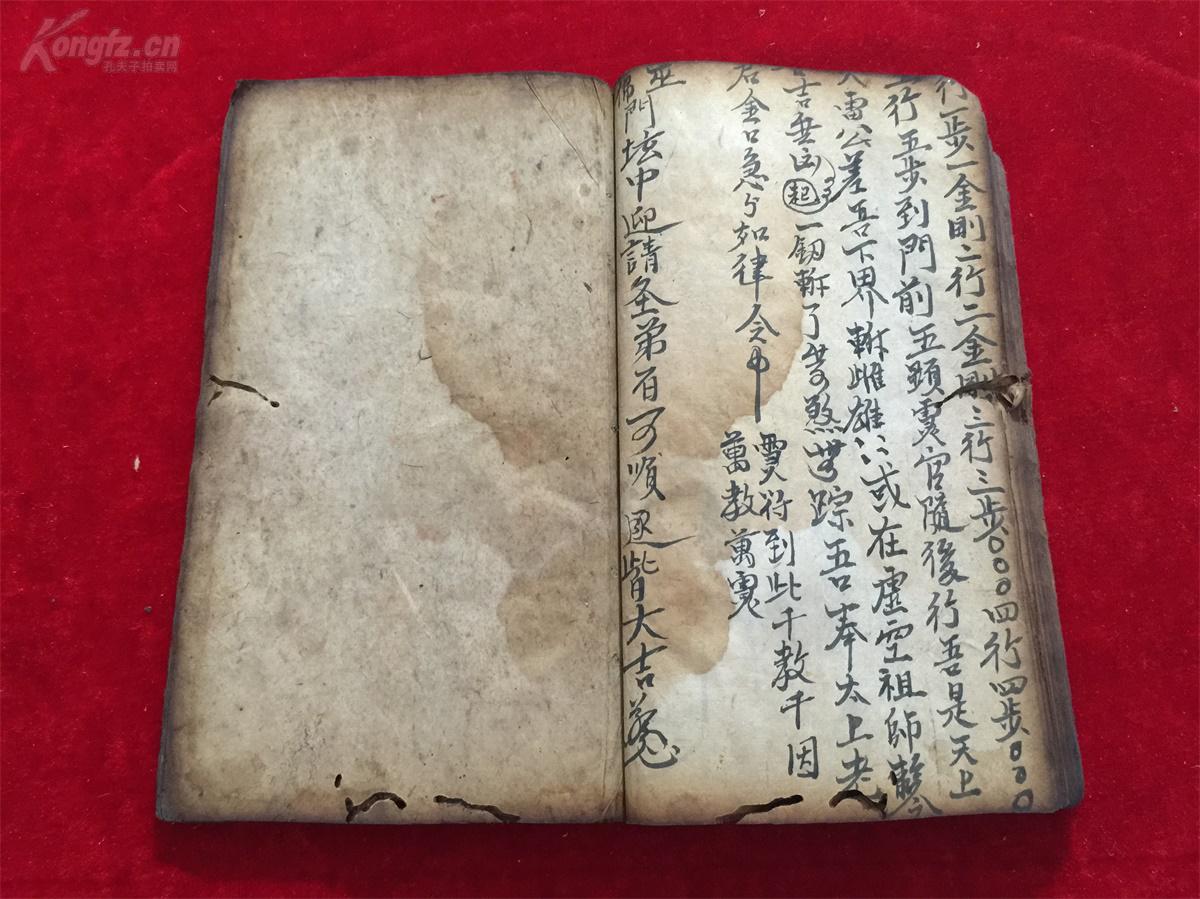 Kongfz.cn
孔夫子拍卖网
行一步一金刚二行二金刚三行三步〇〇〇四行四步〇〇〇
行五步到門前五顕灵官隨後行吾是天上
雷公差吾下界斬雌雄〻或在虚空祖師
吉無凶起一釼斬了無煞無踪吾奉太上老
君金口急〻如律令
灵符到此千教千因
萬教萬灵
門坛中迎請圣弟百可順遂皆大吉